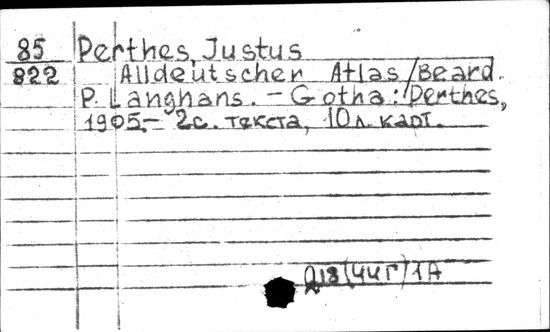 85 Perthes, Justus
822 Alldeutscher Atlas/Beard.
P. Langhans. – Gotha: Perthes,
1905.– 2с. текста, 10л. карт.
Д18(4ЧГ)1А